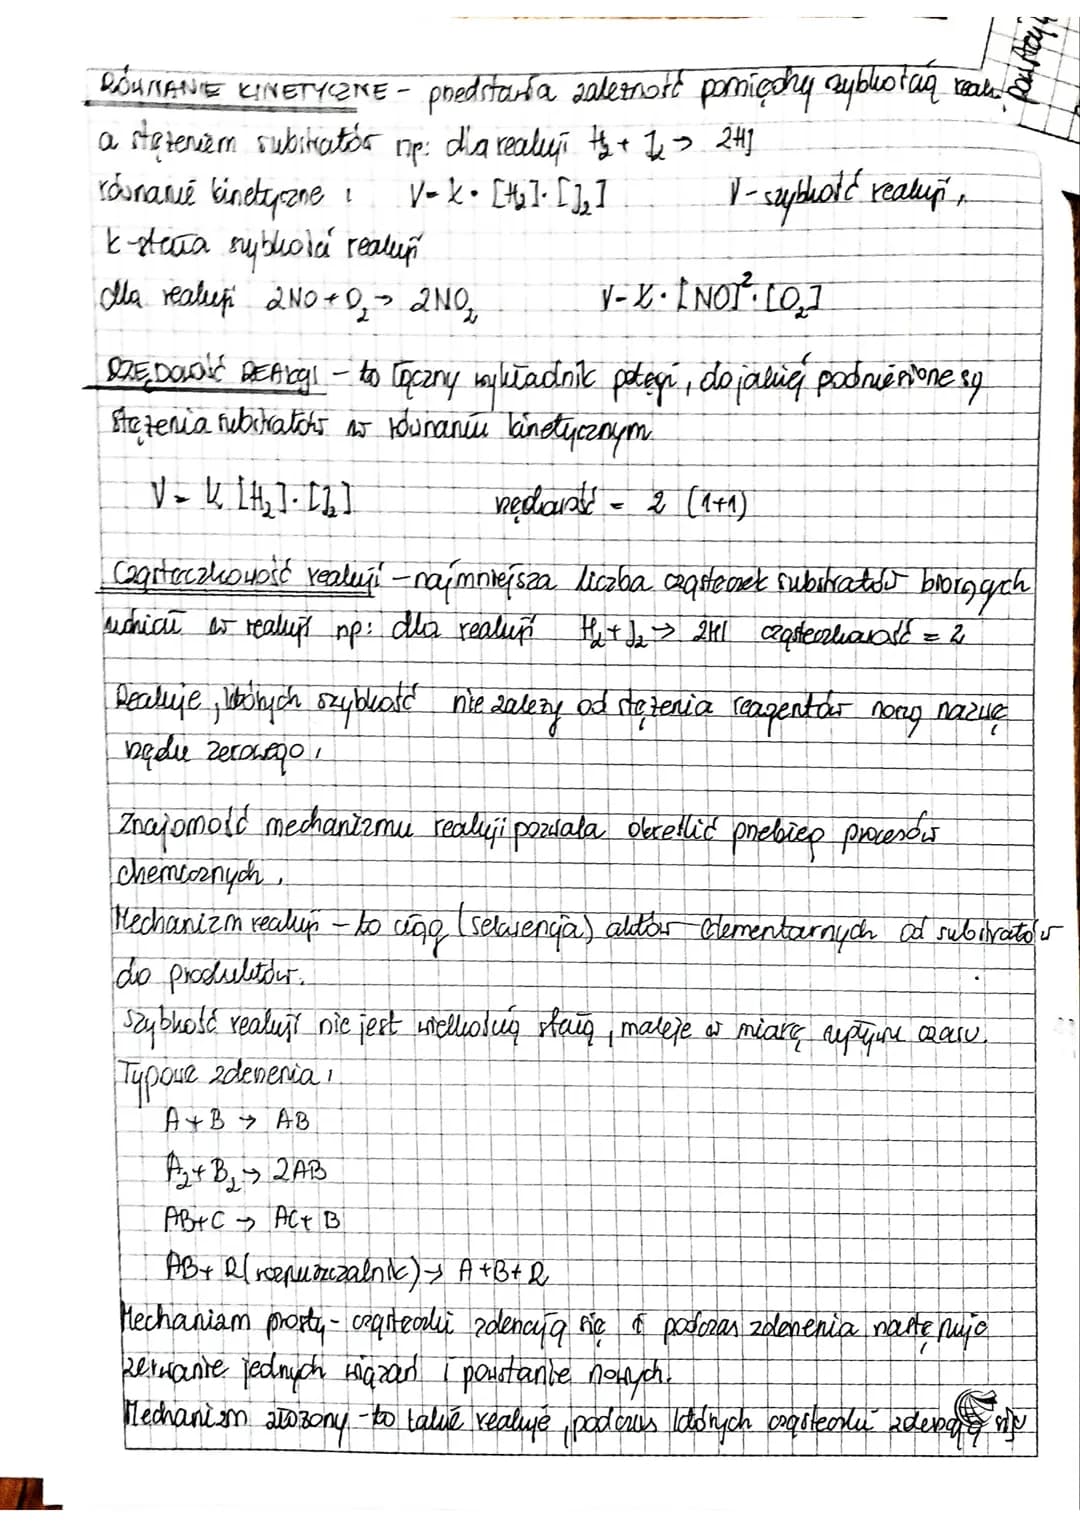 RÓWNANIE KINETYCZNE - przedstawia zależność pomiędzy szybkością reakcji
a stężeniem substratów np: dla reakcji H₂ + I₂ → 2HI
równanie kinetyczne: V = k · [H₂] · [I₂] V - szybkość reakcji,
k - stała szybkości reakcji
dla reakcji 2NO + O₂ → 2NO₂ V = k · [NO]² · [O₂]
RZĘDOWOŚĆ REAKCJI - to łączny wykładnik potęgi, do jakiej podniesione są
stężenia substratów w równaniu kinetycznym.
V = k [H₂] · [I₂] rzędowość = 2 (1+1)
Cząsteczkowość reakcji - najmniejsza liczba cząsteczek substratów biorących
udział w reakcji np: dla reakcji H₂ + I₂ → 2HI cząsteczkowość = 2
Reakcje, których szybkość nie zależy od stężenia reagentów noszą nazwę
rzędu zerowego.
Znajomość mechanizmu reakcji pozwala określić przebieg procesów
chemicznych.
Mechanizm reakcji - to ciąg (sekwencja) aktów elementarnych od substratów
do produktów.
Szybkość reakcji nie jest wielkością stałą, maleje w miarę upływu czasu.
Typowe zderzenia:
A + B → AB
A₂ + B₂ → 2AB
AB + C → AC + B
AB + R (rozpuszczalnik) → A + B + R
Mechanizm prosty - cząsteczki zderzają się i podczas zderzenia następuje
zerwanie jednych wiązań i powstanie nowych.
Mechanizm złożony - to takie reakcje, podczas których cząsteczki zderzają się